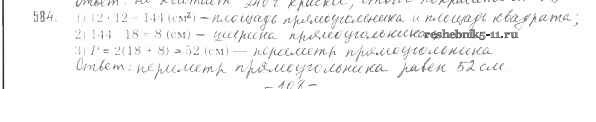 584.
1) 12 · 12 = 144 (см²) – площадь прямоугольника и площадь квадрата;
2) 144 : 18 = 8 (см) – ширина прямоугольника;
reshebnik5-11.ru
3) P = 2(18 + 8) = 52 (см) – периметр прямоугольника
Ответ: периметр прямоугольника равен 52 см
– 107 –